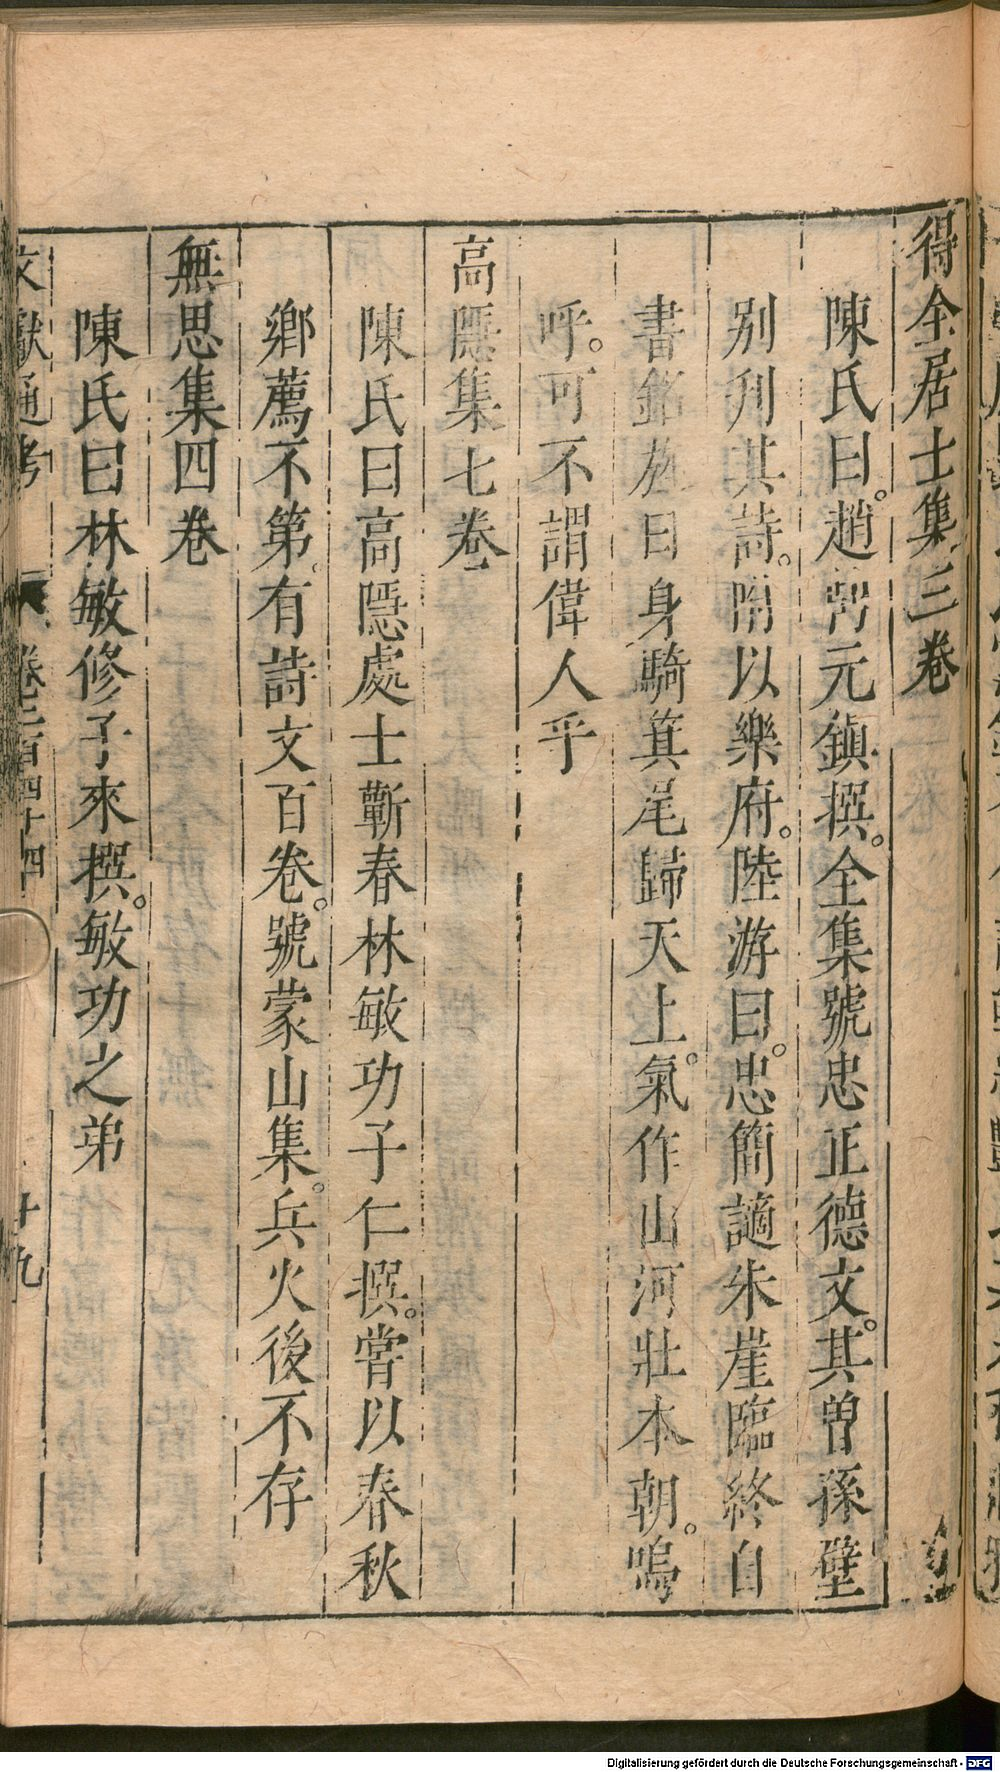 得全居士集三卷
陳氏曰。趙鼎元鎮撰。全集號忠正德文。其曾孫璧
别刋其詩。附以樂府。陸游曰。忠簡謫朱崖臨終自
書銘旌曰身騎箕尾歸天上。氣作山河壯本朝。嗚
呼。可不謂偉人乎
高隱集七卷
陳氏曰高隱處士蘄春林敏功子仁撰。嘗以春秋
鄉薦不第。有詩文百卷。號蒙山集。兵火後不存
無思集四卷
陳氏曰林敏修子來撰。敏功之弟
文獻通考 卷二百四十四 十九
Digitalisierung gefördert durch die Deutsche Forschungsgemeinschaft - DFG